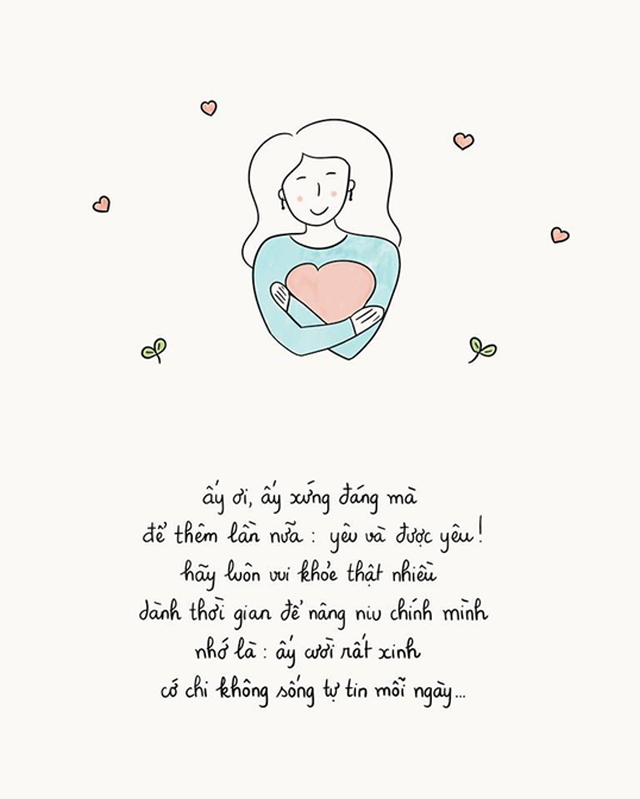 ấy ơi, ấy xứng đáng mà
để thêm lần nữa : yêu và được yêu!
hãy luôn vui khỏe thật nhiều
dành thời gian để nâng niu chính mình
nhớ là : ấy cười rất xinh
cớ chi không sống tự tin mỗi ngày...